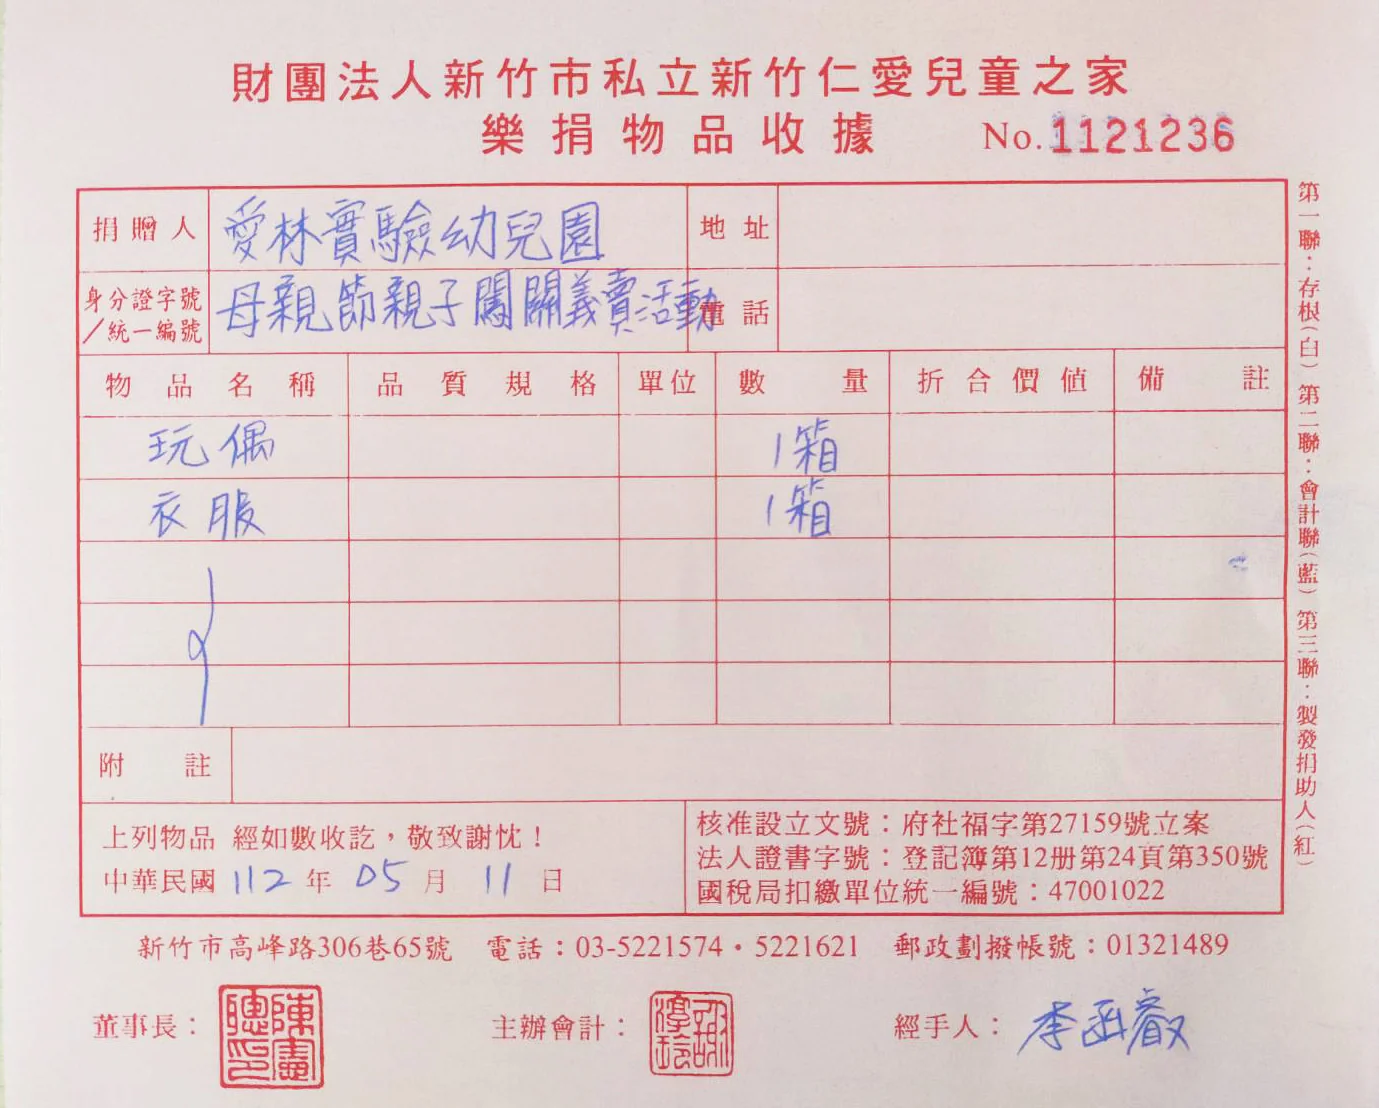 財團法人新竹市私立新竹仁愛兒童之家
樂捐物品收據 No.1121236
捐贈人 愛林實驗幼兒園 地址
身分證字號/統一編號 母親節親子闖關義賣活動 電話
物品名稱 品質規格 單位 數量 折合價值 備註
玩偶 1箱
衣服 1箱
附註
上列物品 經如數收訖，敬致謝忱！
中華民國 112 年 05 月 11 日
核准設立文號：府社福字第27159號立案
法人證書字號：登記簿第12册第24頁第350號
國稅局扣繳單位統一編號：47001022
新竹市高峰路306巷65號 電話：03-5221574・5221621 郵政劃撥帳號：01321489
董事長： 陳憲聰印 主辦會計： 經手人： 李函叡
第一聯：存根(白) 第二聯：會計聯(藍) 第三聯：製發捐助人(紅)